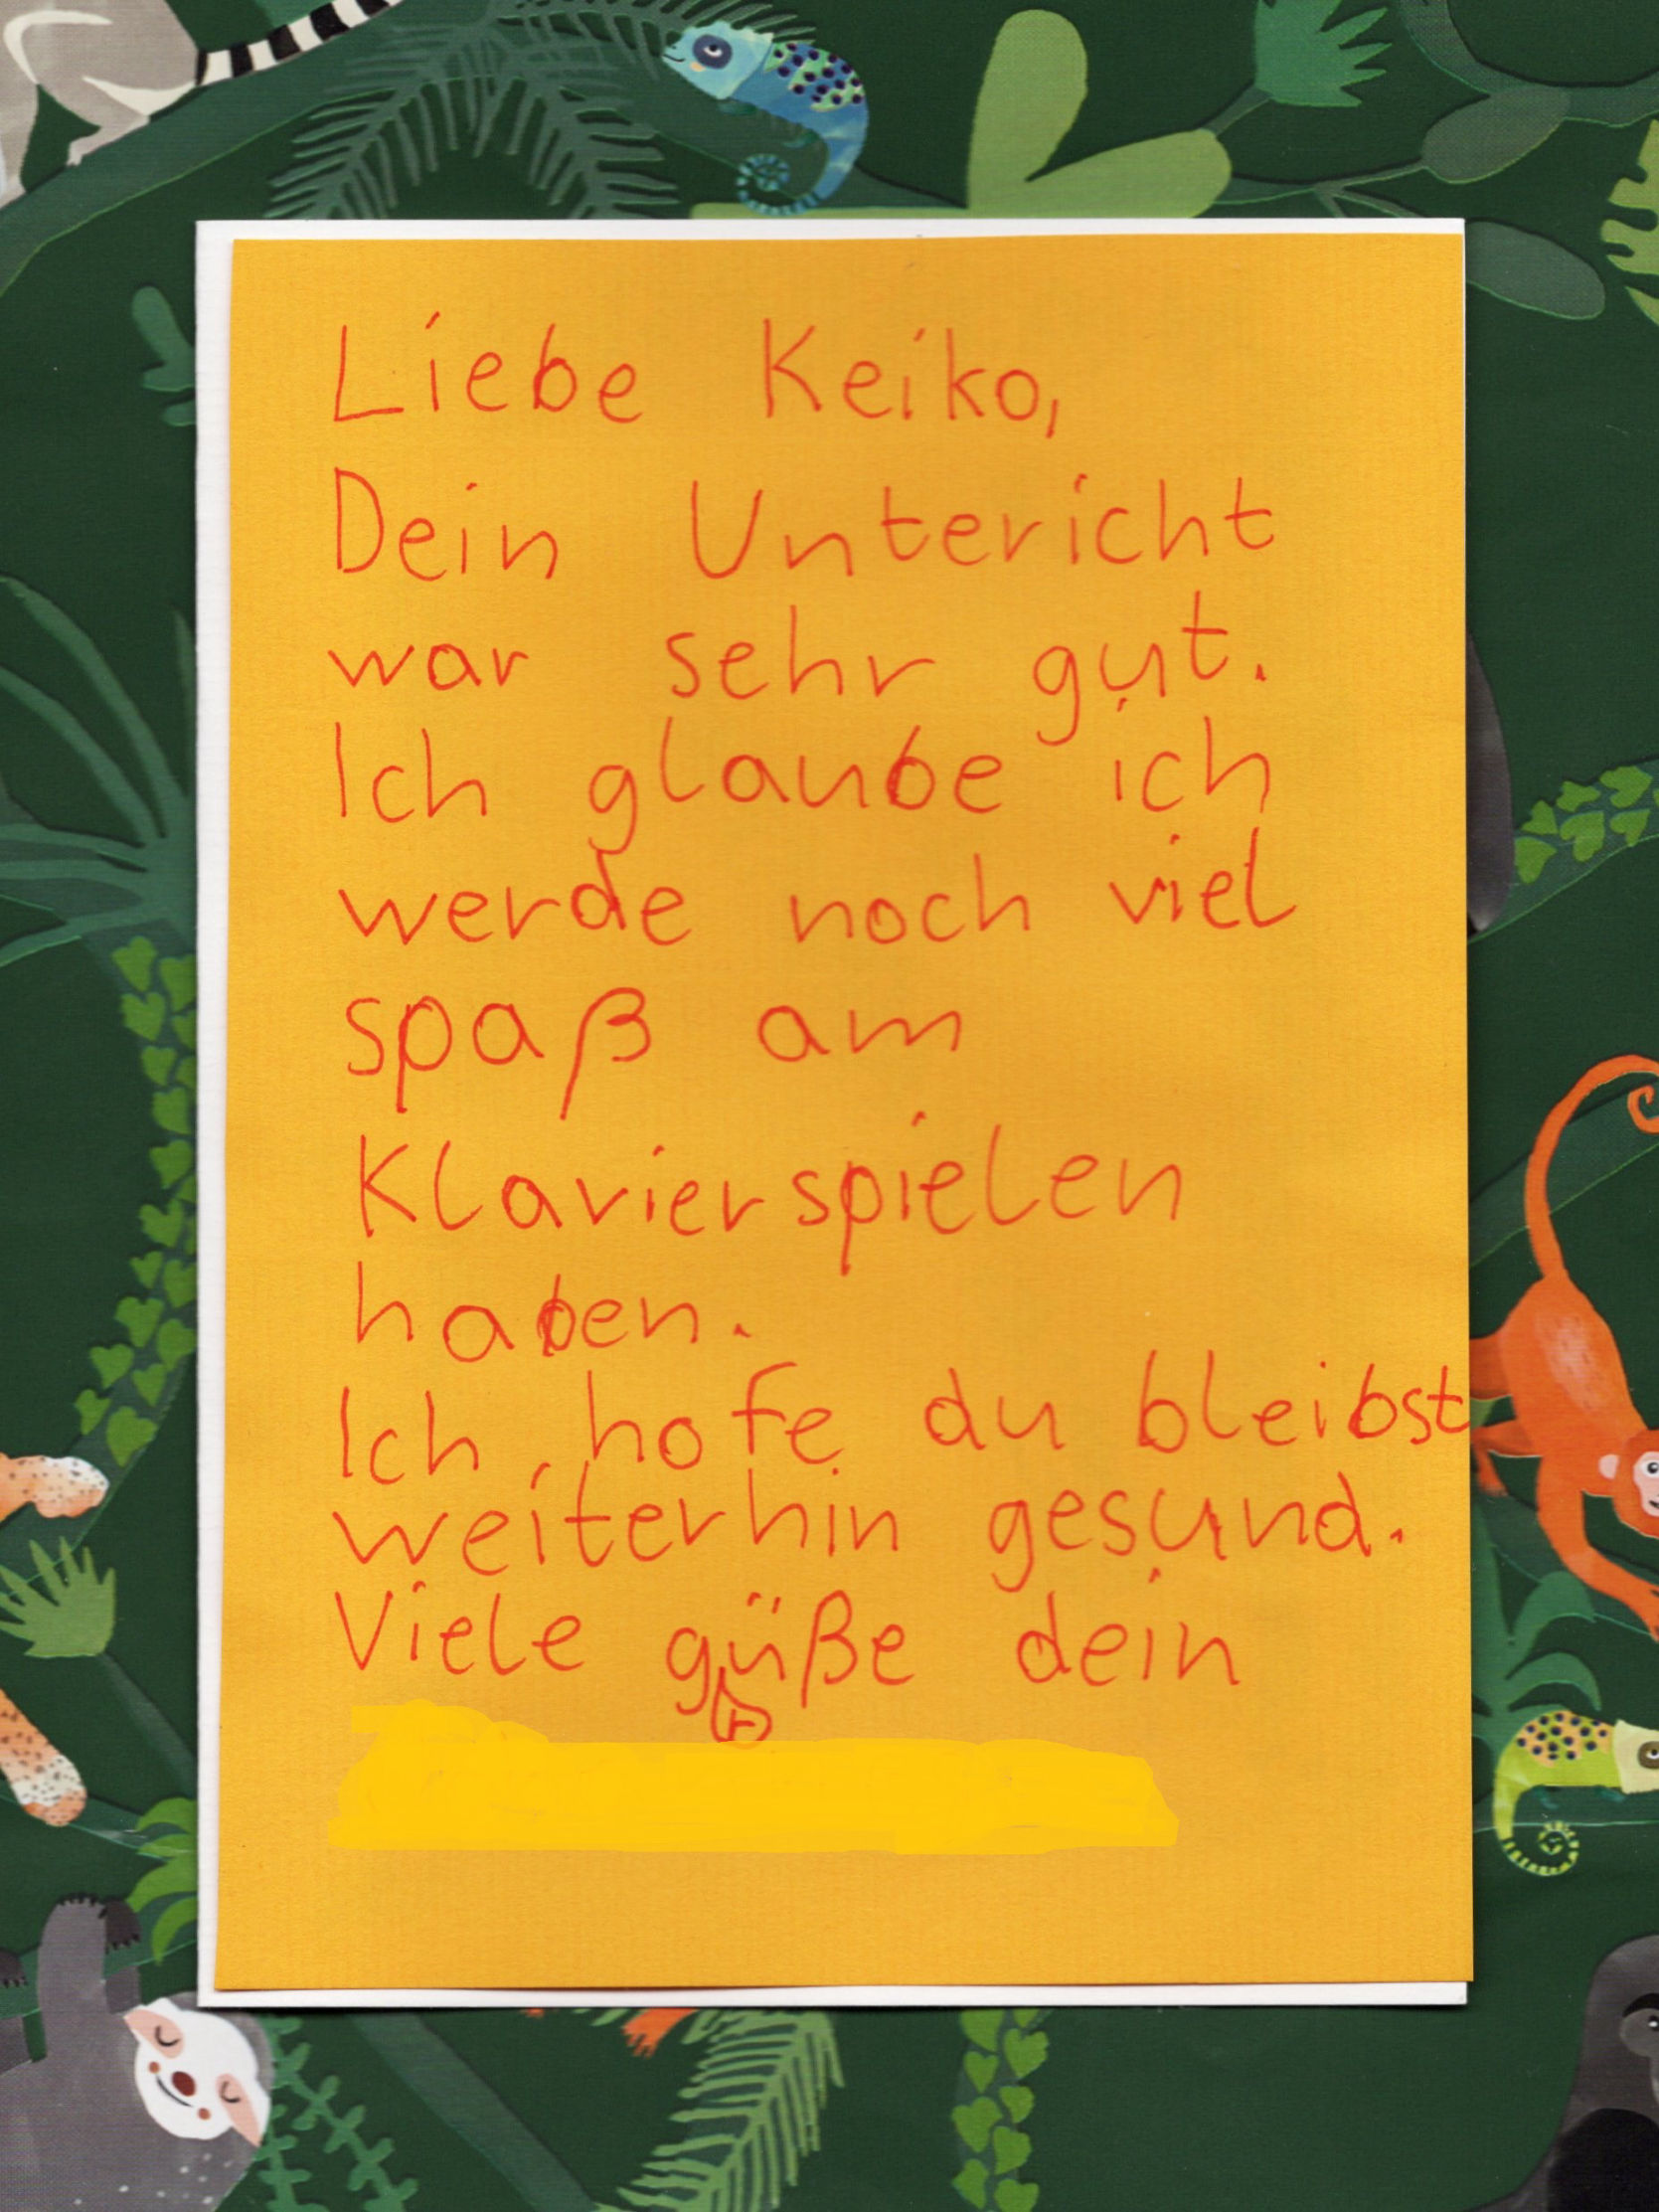 Liebe Keiko,
Dein Untericht
war sehr gut.
Ich glaube ich
werde noch viel
spaß am
Klavierspielen
haben.
Ich hofe du bleibst
weiterhin gesund.
Viele güße dein
r